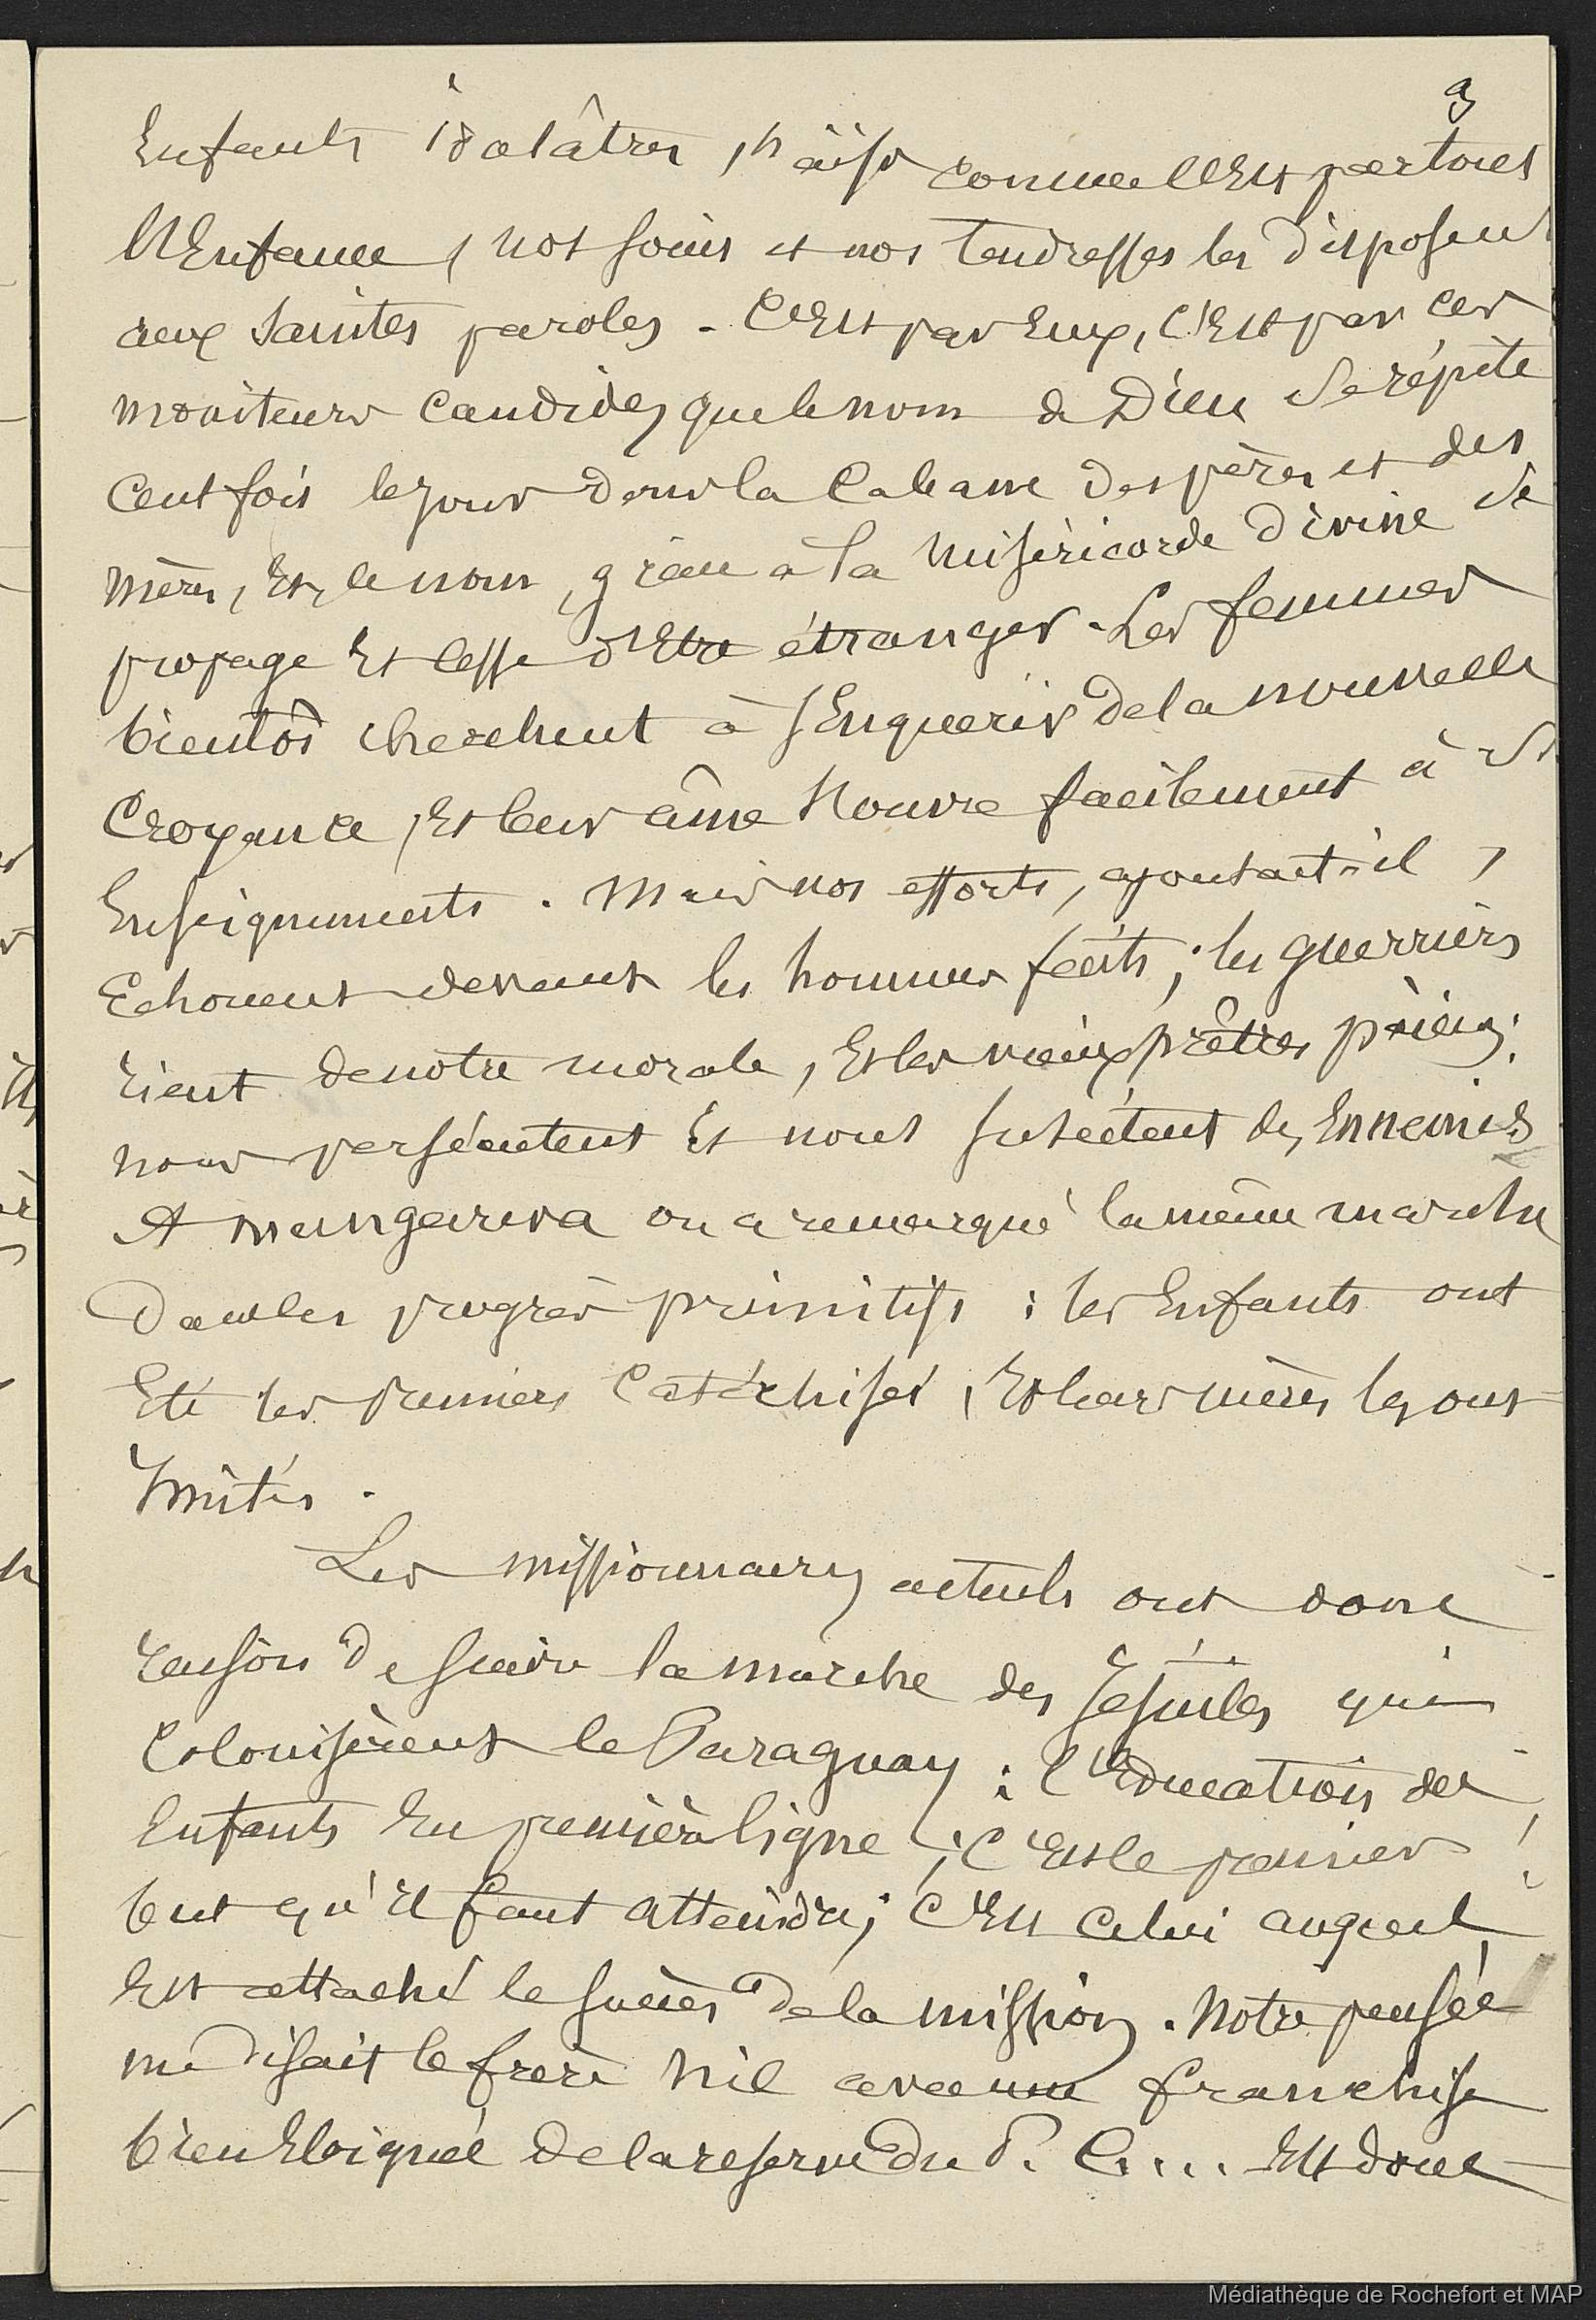 3
Enfants idolâtres, naïfs comme l'Est partout
l'Enfance, nos soins et nos tendresses les disposent
aux saintes paroles. C'Est par Eux, C'Est par ces
moniteurs candides que le nom de Dieu se répète
Cent fois le jour dans la Cabane des pères et des
mères, Et, le nom, grâce à la miséricorde divine se
propage Et cesse d'Etre étranger. Les femmes
bientôt cherchent à s'Enquérir de la nouvelle
Croyance, Et leur âme s'ouvre facilement à ses
Enseignements. Mais nos efforts, ajoutait-il,
Echouent devant les hommes faits; les guerriers
rient de notre morale, Et les vieux prêtres païens
nous persécutent Et nous suscitent des Ennemis
A mangareva on a remarqué la même marche
Dans les progrès primitifs : les Enfants ont
Eté les premiers Catéchisés, Et leurs mères les ont
Imités.
Les missionnaires actuels ont donc
raison de suivre la marche des Jésuites qui
Colonisèrent le Paraguay : l'Education des
Enfants En première ligne; C'Est le premier
but qu'il faut atteindre; C'Est celui auquel
Est attaché le succès de la mission. Notre pensée
me disait le frère Nil avec une franchise
bien Eloignée de la reserve du P. C.... Est donc
Médiathèque de Rochefort et MAP